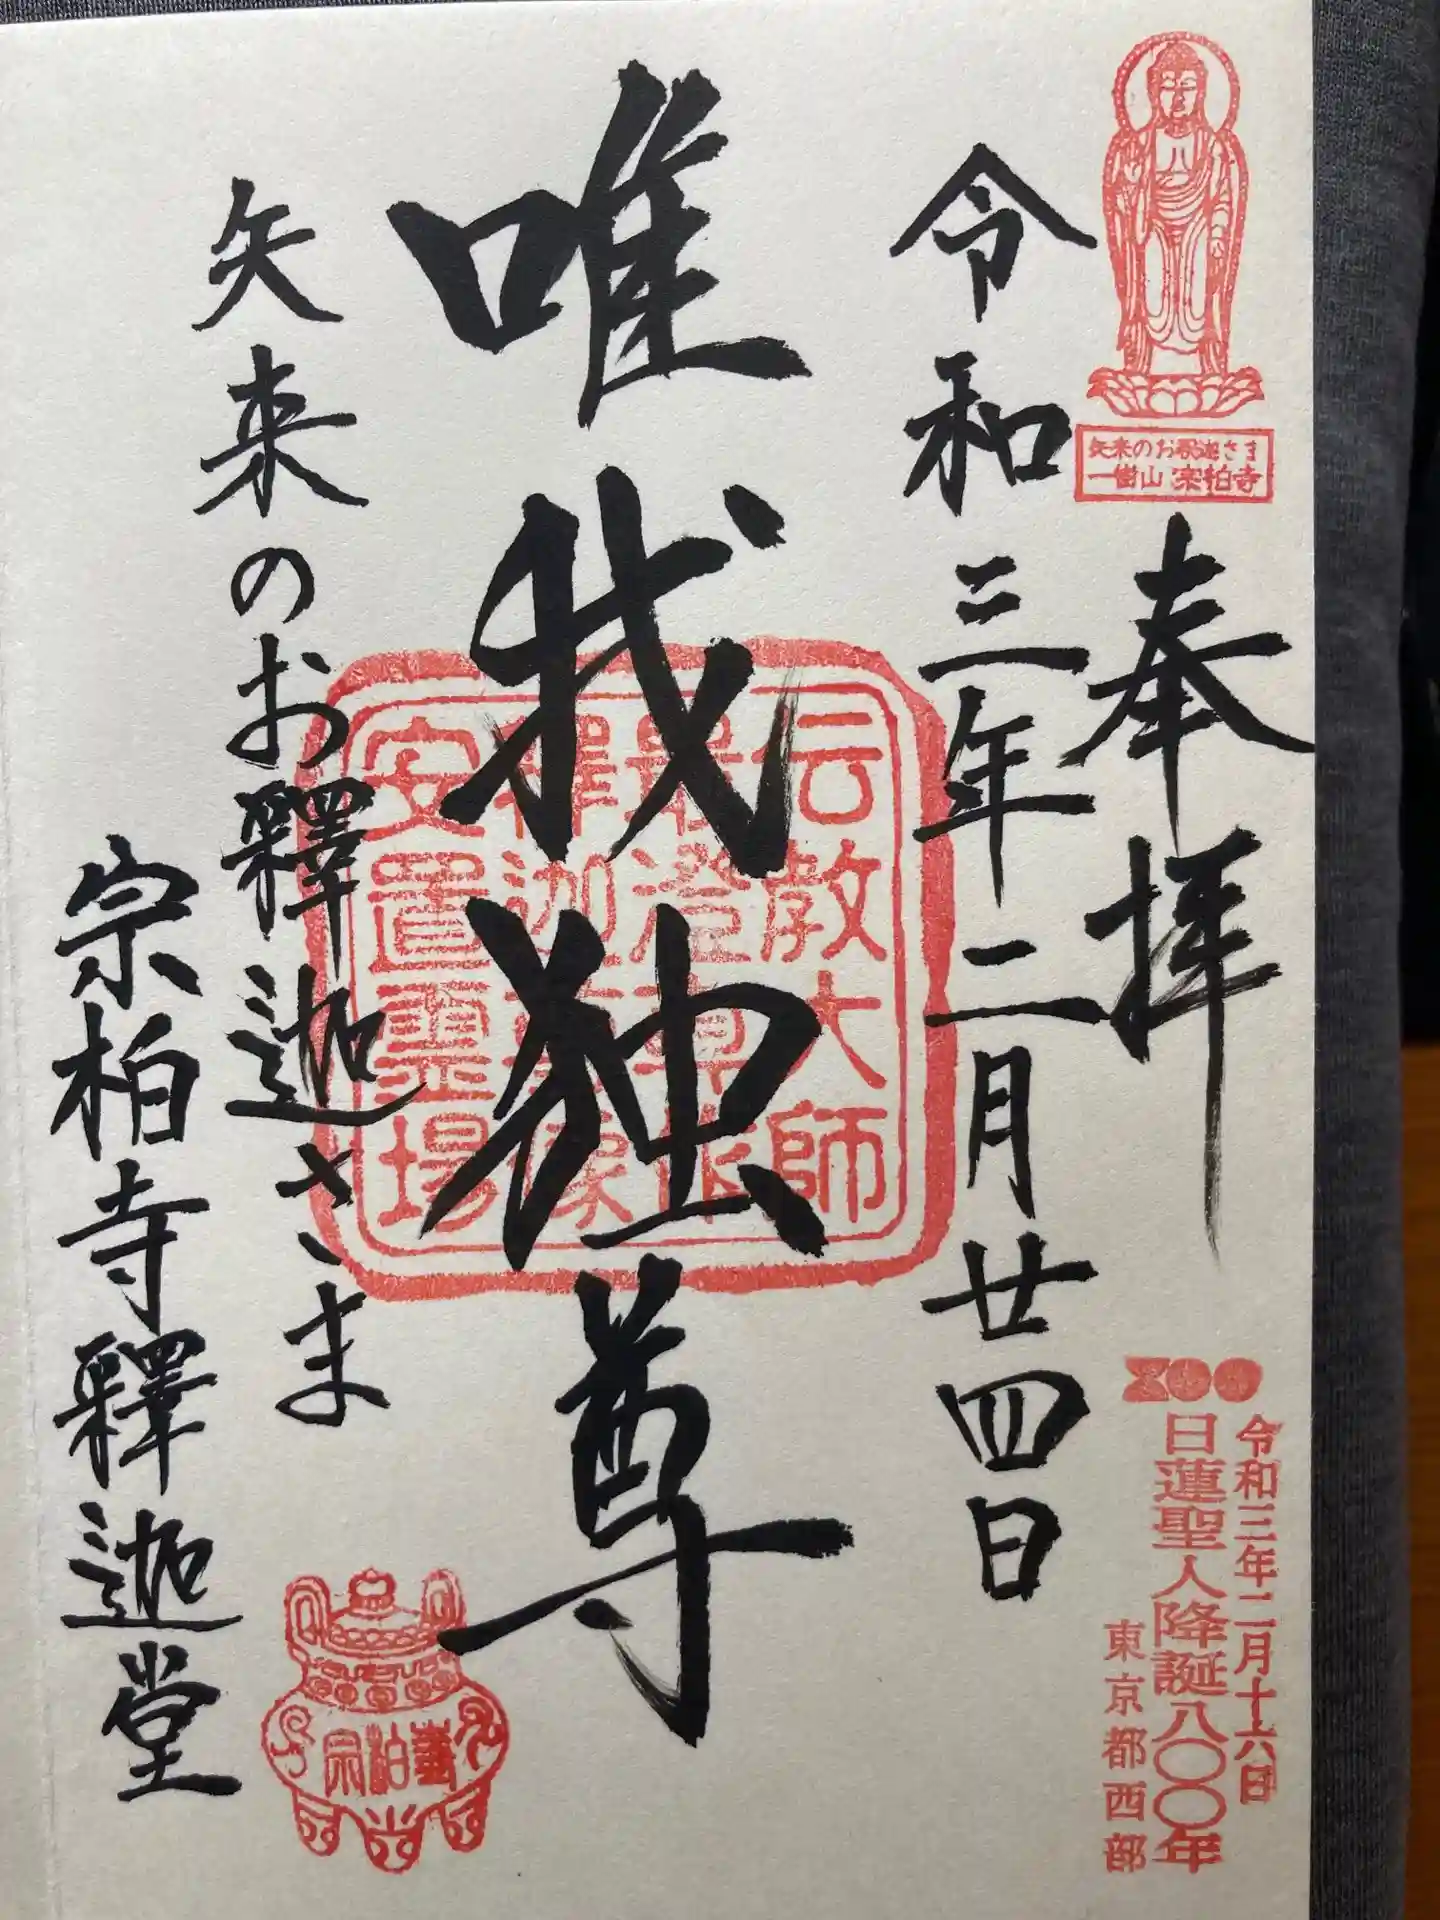 矢来のお釈迦さま
一樹山 宗柏寺
奉拝
令和三年二月廿四日
唯我独尊
矢来のお釋迦さま
宗柏寺釋迦堂
伝教大師
最澄尊作
釋迦尊像
安置霊場
800
令和三年二月十六日
日蓮聖人降誕八〇〇年
東京都西部
宗柏寺